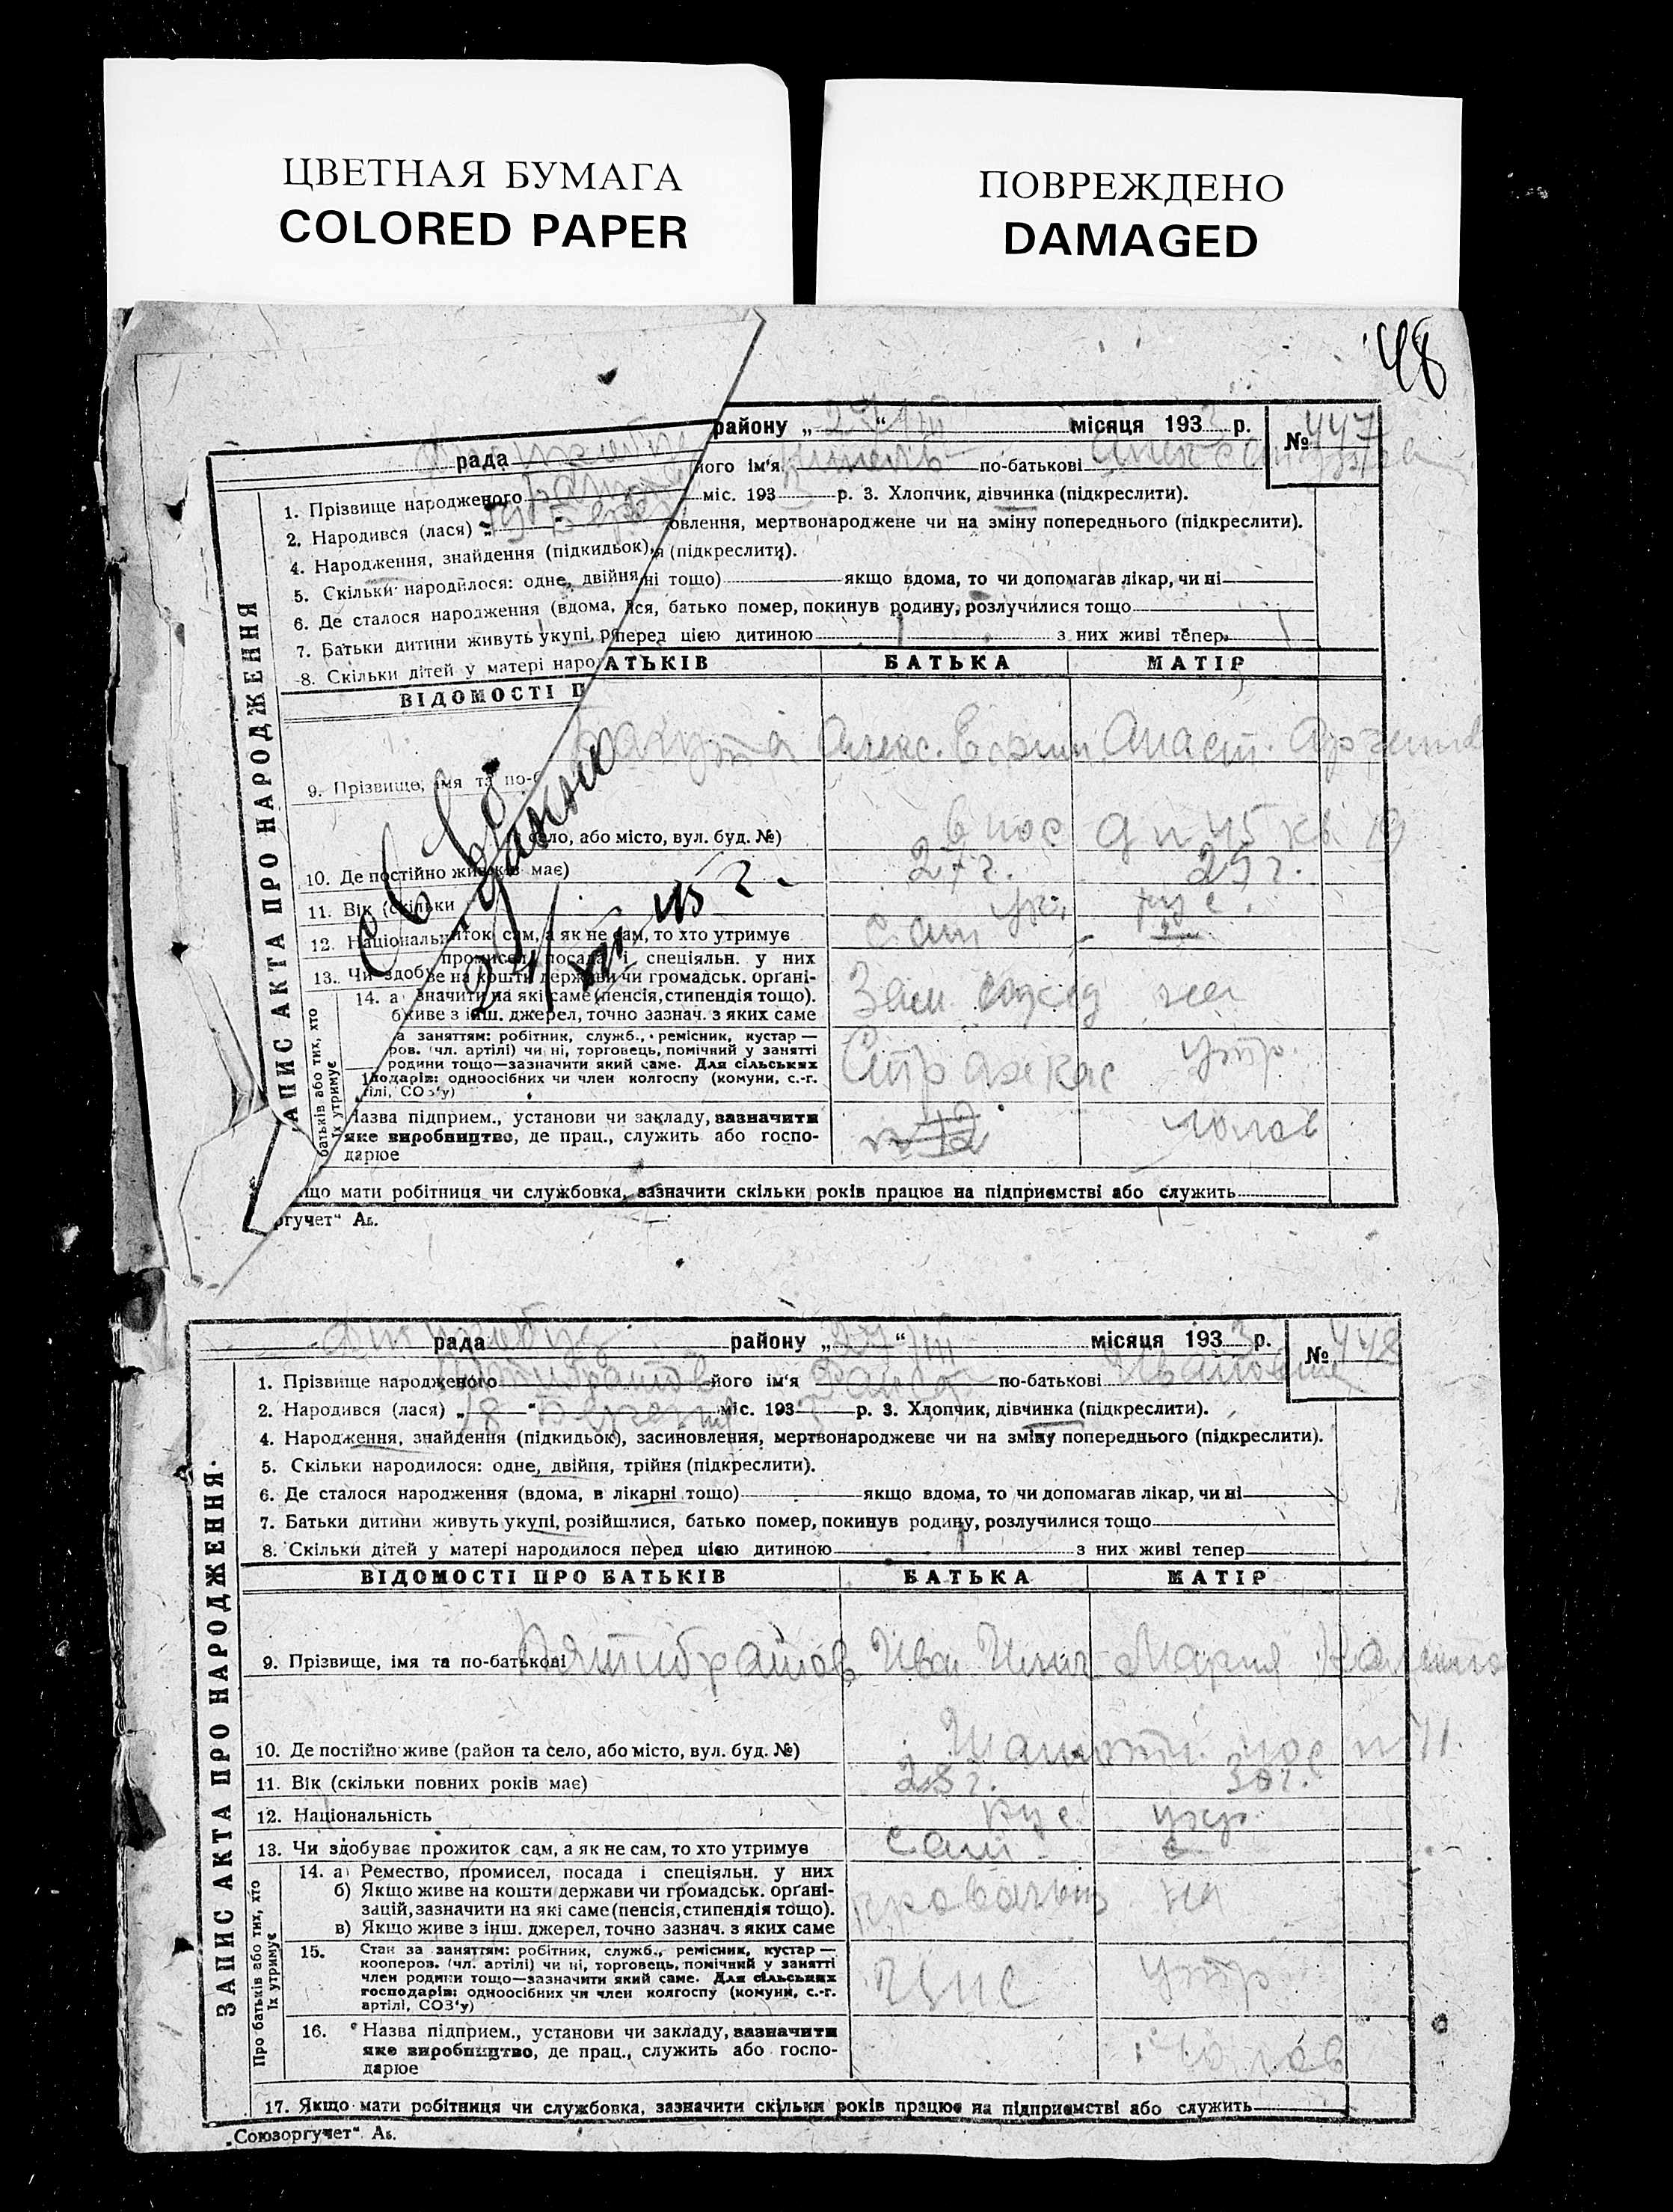 ЦВЕТНАЯ БУМАГА
COLORED PAPER
ПОВРЕЖДЕНО
DAMAGED
48
рада району „27/III“ місяця 193 р. № 447
1. Прізвище народженого його ім'я по-батькові
2. Народився (лася) „ міс. 193 р. 3. Хлопчик, дівчинка (підкреслити).
4. Народження, знайдення (підкидьок), овлення, мертвонароджене чи на зміну попереднього (підкреслити).
5. Скільки народилося: одне, двійня, я (підкреслити).
6. Де сталося народження (вдома, ні тощо) якщо вдома, то чи допомагав лікар, чи ні
7. Батьки дитини живуть укупі, р ся, батько помер, покинув родину, розлучилися тощо
8. Скільки дітей у матері наро перед цією дитиною 1 з них живі тепер 1
ВІДОМОСТІ П АТЬКІВ БАТЬКА МАТІР
9. Прізвище, імя та по-б Алекс. Анаст.
село, або місто, вул. буд. №) в пос д п 45 кв. 19
10. Де постійно жи ків має) 27 г. 29 г.
11. Вік (скільки укр. рус.
12. Національн иток сам, а як не сам, то хто утримує сам -
13. Чи здобу
промисел, посада і спеціяльн. у них
ве на кошти держави чи громадськ. орґані-
14. а значити на які саме (пенсія, стипендія тощо). Зам. на
б живе з інш. джерел, точно зазнач. з яких саме
а заняттям: робітник, служб., ремісник, кустар —
ров. (чл. артілі) чи ні, торговець, помічний у занятті утр.
родини тощо—зазначити який саме. Для сільських
подарів: одноосібних чи член колгоспу (комуни, с.-г.
тілі, СОЗ'у)
Назва підприєм., установи чи закладу, зазначити
яке виробництво, де прац., служить або госпо- чолов
дарює
що мати робітниця чи службовка, зазначити скільки років працює на підприємстві або служить
ргучет" Ав.
ЗАПИС АКТА ПРО НАРОДЖЕННЯ
батьків або тих, хто
їх утримує
24/VIII 45 г.
рада району „27/III“ місяця 1933 р. № 448
1. Прізвище народженого Пятибратов його ім'я по-батькові Ивановна
2. Народився (лася) „18“ Березня міс. 1933 р. 3. Хлопчик, дівчинка (підкреслити).
4. Народження, знайдення (підкидьок), засиновлення, мертвонароджене чи на зміну попереднього (підкреслити).
5. Скільки народилося: одне, двійня, трійня (підкреслити).
6. Де сталося народження (вдома, в лікарні тощо) якщо вдома, то чи допомагав лікар, чи ні
7. Батьки дитини живуть укупі, розійшлися, батько помер, покинув родину, розлучилися тощо
8. Скільки дітей у матері народилось перед цією дитиною 1 з них живі тепер
ВІДОМОСТІ ПРО БАТЬКІВ БАТЬКА МАТІР
9. Прізвище, імя та по-батькові Пятибратов Иван Ильич Мария
10. Де постійно живе (район та село, або місто, вул. буд. №) пос
11. Вік (скільки повних років має) 28 г. 30 г.
12. Національність рус укр
13. Чи здобуває прожиток сам, а як не сам, то хто утримує сам -
14. а) Ремество, промисел, посада і спеціяльн. у них
б) Якщо живе на кошти держави чи громадськ. орґані-
зацій, зазначити на які саме (пенсія, стипендія тощо). на
в) Якщо живе з інш. джерел, точно зазнач. з яких саме
15. Стан за заняттям: робітник, служб., ремісник, кустар —
кооперов. (чл. артілі) чи ні, торговець, помічний у занятті
член родини тощо—зазначити який саме. Для сільських утр
господарів: одноосібних чи член колгоспу (комуни, с.-г.
артілі, СОЗ'у)
16. Назва підприєм., установи чи закладу, зазначити
яке виробництво, де прац., служить або госпо- чолов
дарює
17. Якщо мати робітниця чи службовка, зазначити скільки років працює на підприємстві або служить
„Союзоргучет" Ав.
ЗАПИС АКТА ПРО НАРОДЖЕННЯ
Про батьків або тих, хто
їх утримує